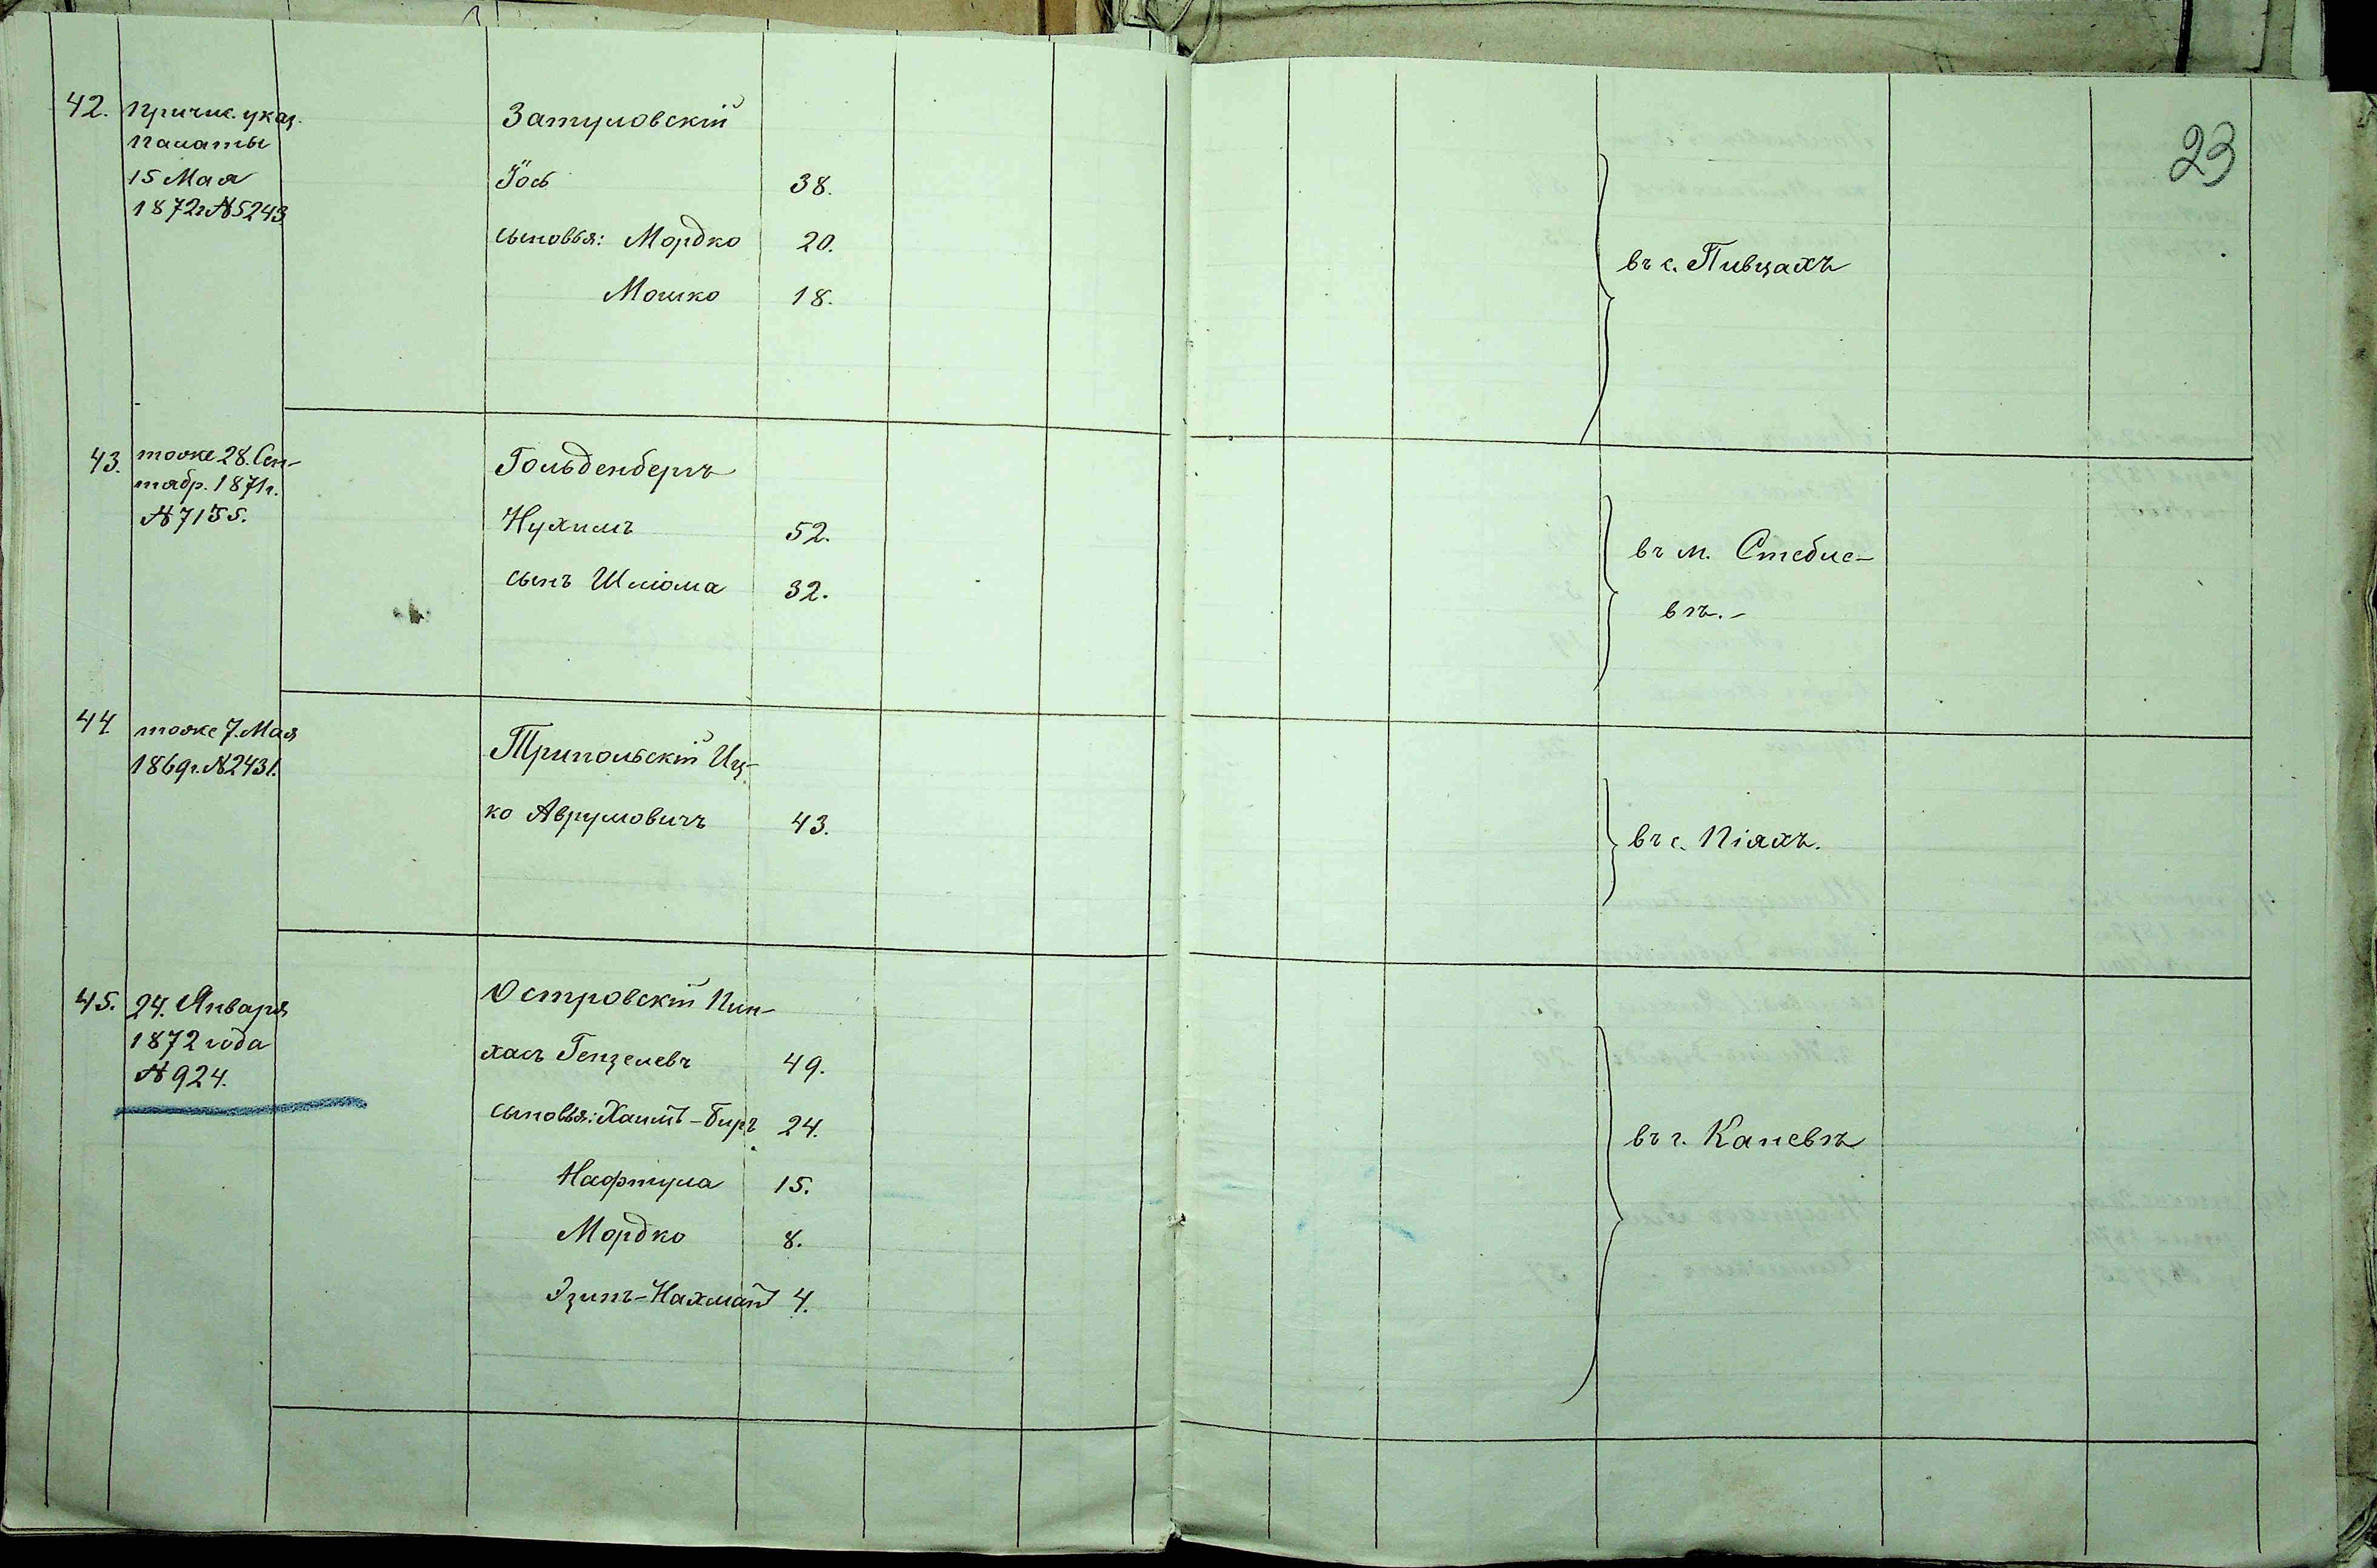 23
42. Причис. указ.
палаты
15 Мая
1872 г. № 5243
Затуловскій
Іось 38.
сыновья: Мордко 20.
Мошко 18.
въ с. Пивцахъ
43. тоже 28. Сен-
тябр. 1871 г.
№ 7155.
Гольденбергъ
Нухимъ 52.
сынъ Шліома 32.
въ м. Стебле-
вѣ.-
44. тоже 7. Мая
1869 г. № 2431.
Трипольскій Иц-
ко Аврумовичъ 43.
въ с. Піяхъ.
45. 24. Января
1872 года
№ 924.
Островскій Пин-
хасъ Гензелевъ 49.
сыновья: Хаимъ-Биръ 24.
Нафтула 15.
Мордко 8.
Эзипъ-Нахманъ 4.
въ г. Каневѣ